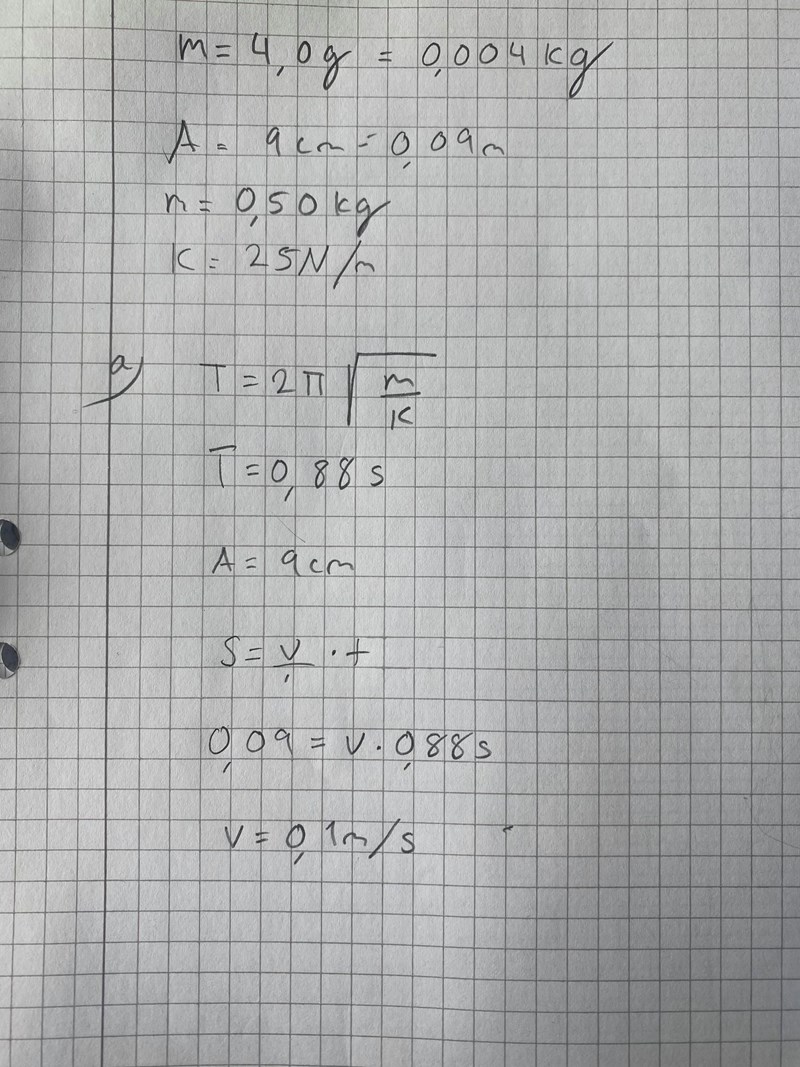 m = 4,0g = 0,004 kg
A = 9 cm = 0,09m
m = 0,50 kg
K = 25N/m
a) T = 2π √(m/K)
T = 0,88 s
A = 9cm
S = v · t
0,09 = v · 0,88s
v = 0,1m/s